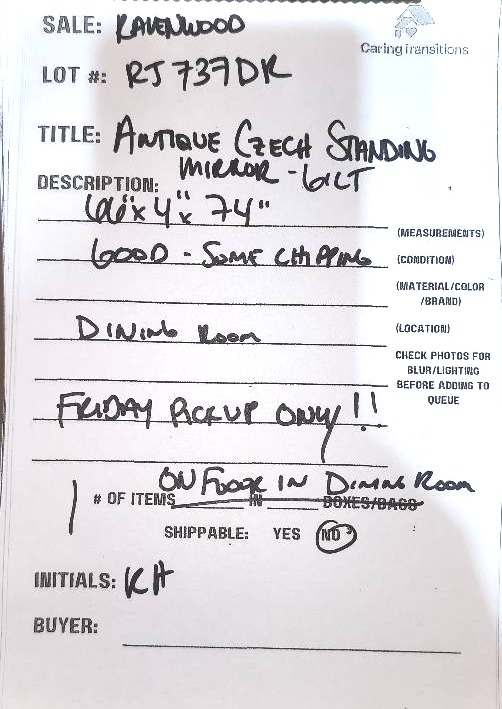 SALE: RAVENWOOD
CaringTransitions
LOT #: RJ737DR
TITLE: ANTIQUE CZECH STANDING
MIRROR - GILT
DESCRIPTION:
66"x 4"x 74"
(MEASUREMENTS)
GOOD - SOME CHIPPING (CONDITION)
(MATERIAL/COLOR
/BRAND)
DINING ROOM (LOCATION)
CHECK PHOTOS FOR
BLUR/LIGHTING
BEFORE ADDING TO
QUEUE
FRIDAY PICKUP ONLY!!
ON FLOOR IN DINING ROOM
1 # OF ITEMS IN BOXES/BAGS
SHIPPABLE: YES NO
INITIALS: KH
BUYER: